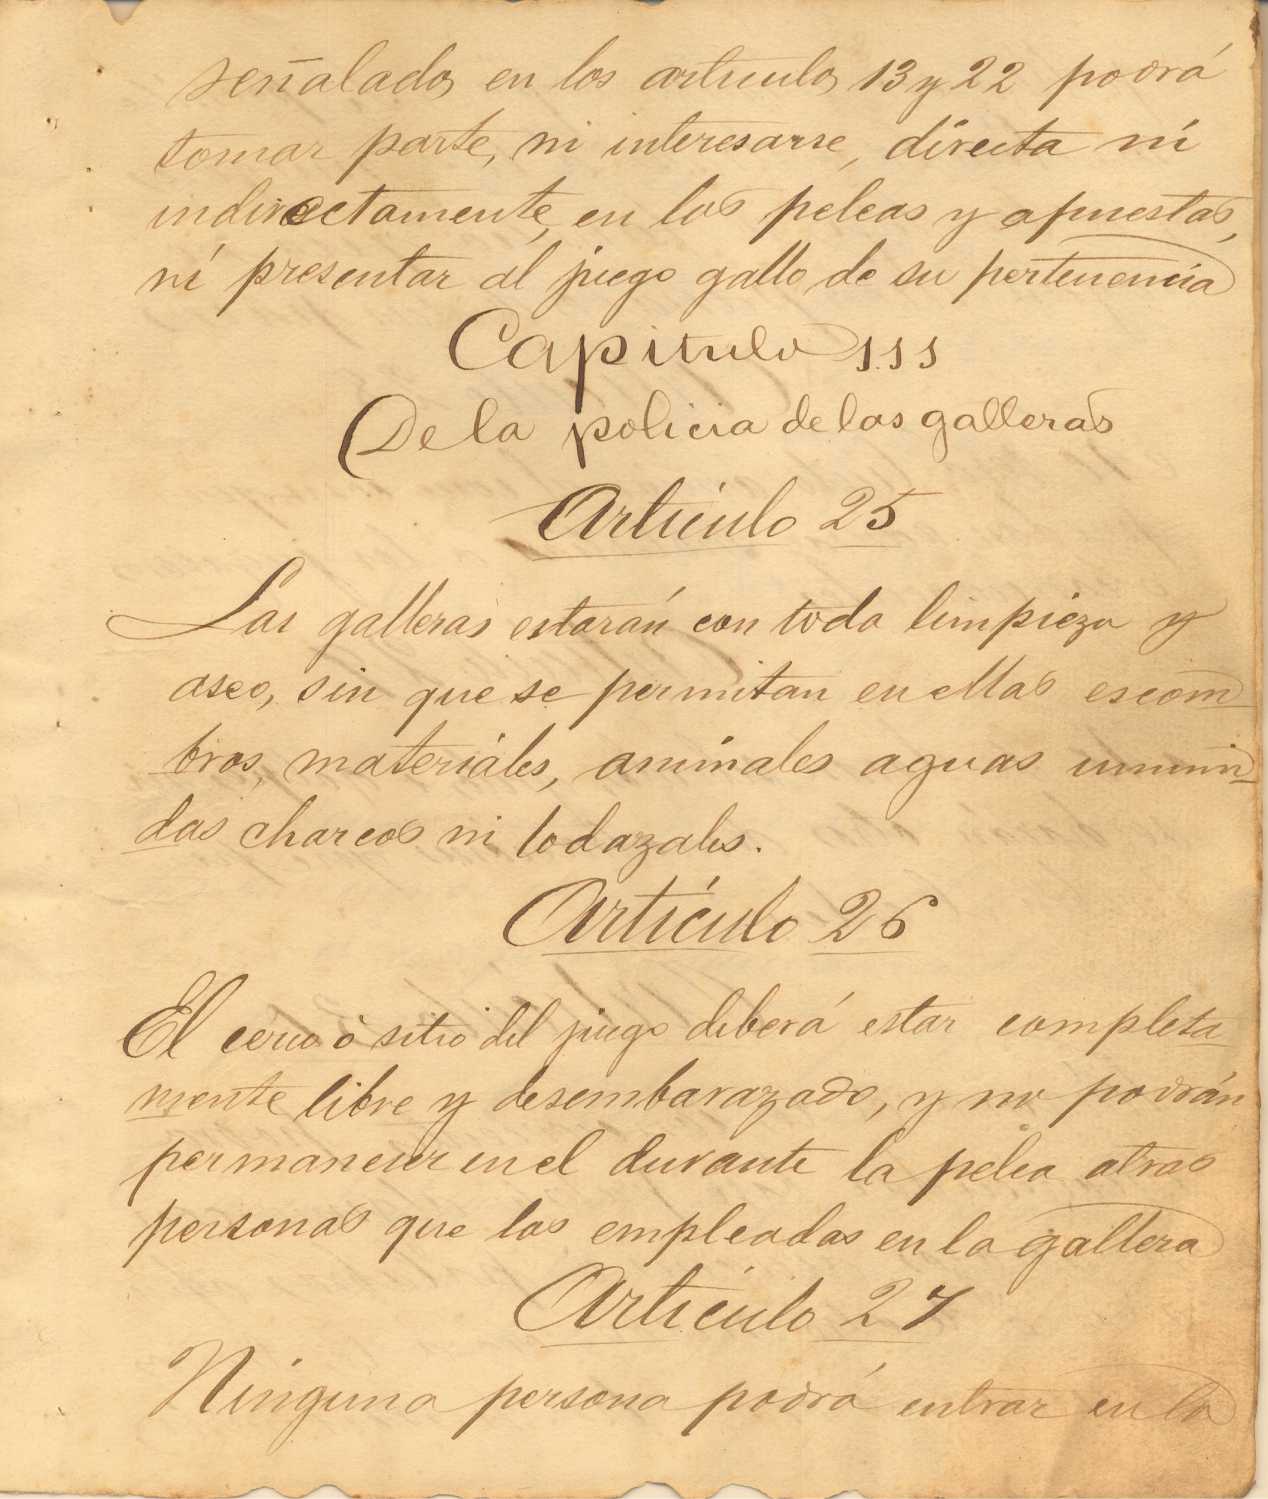 señalados en los articulos 13 y 22 podrá
tomar parte, ni interesarse, directa ni
indirectamente, en las peleas y apuestas,
ni presentar al juego gallo de su pertenencia
Capitulo III
De la policia de las galleras
Artículo 25
Las galleras estarán con toda limpieza y
aseo, sin que se permitan en ellas escom
bros, materiáles, animales aguas inmun
das charcos ni lodazales.
Artículo 26
El cerco ó sitio del juego deberá estar completa
mente libre y desembarazado, y no podrán
permanecer en el durante la pelea otras
personas que las empleadas en la gallera
Artículo 27
Ninguna persona podrá entrar en la